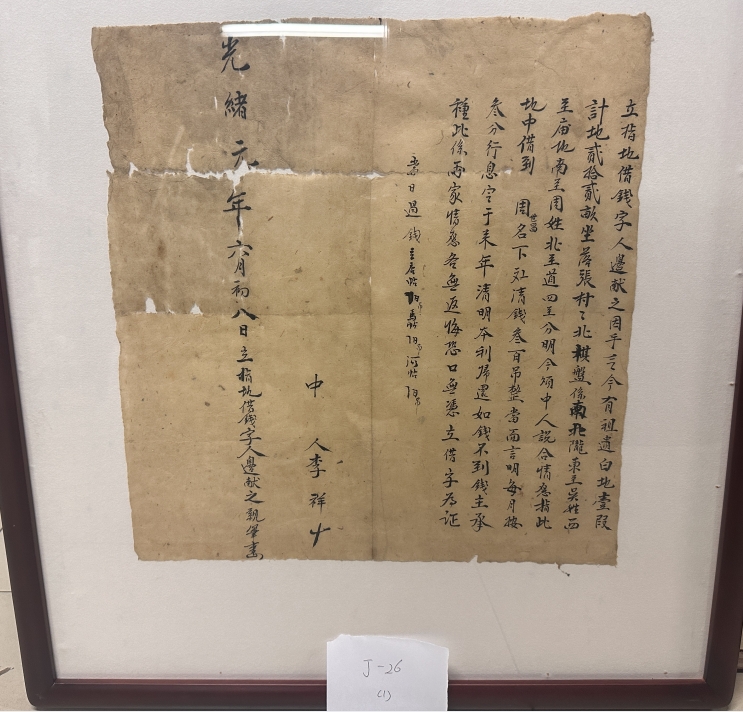 立指地借錢字人邊献之因手乏今有祖遺白地壹段
計地貳拾貳畝坐落張村々北棋盤係南北隴東至吳姓西
至庙地南至周姓北至道四至分明今煩中人説合情愿指此
地中借到 周世昌名下清錢叁百吊整當面言明每月按
叁分行息定于来年清明本利歸還如錢不到錢主承
種此係兩家情愿各無返悔恐口無憑立借字為証
當日過錢
中人李祥十
光緒元年六月初八日立指地借錢字人邊献之親筆書
J-26
(1)